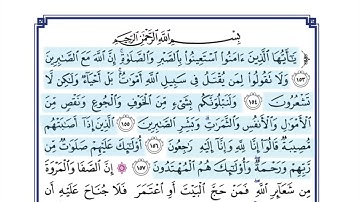 بِسْمِ ٱللَّهِ ٱلرَّحْمَٰنِ ٱلرَّحِيمِ
يَٰٓأَيُّهَا ٱلَّذِينَ ءَامَنُوا۟ ٱسْتَعِينُوا۟ بِٱلصَّبْرِ وَٱلصَّلَوٰةِ ۚ إِنَّ ٱللَّهَ مَعَ ٱلصَّٰبِرِينَ
١٥٣ وَلَا تَقُولُوا۟ لِمَن يُقْتَلُ فِى سَبِيلِ ٱللَّهِ أَمْوَٰتٌۢ ۚ بَلْ أَحْيَآءٌ وَلَٰكِن لَّا
تَشْعُرُونَ ١٥٤ وَلَنَبْلُوَنَّكُم بِشَىْءٍ مِّنَ ٱلْخَوْفِ وَٱلْجُوعِ وَنَقْصٍ مِّنَ
ٱلْأَمْوَٰلِ وَٱلْأَنفُسِ وَٱلثَّمَرَٰتِ ۗ وَبَشِّرِ ٱلصَّٰبِرِينَ ١٥٥ ٱلَّذِينَ إِذَآ أَصَٰبَتْهُم
مُّصِيبَةٌ قَالُوٓا۟ إِنَّا لِلَّهِ وَإِنَّآ إِلَيْهِ رَٰجِعُونَ ١٥٦ أُو۟لَٰٓئِكَ عَلَيْهِمْ صَلَوَٰتٌ مِّن
رَّبِّهِمْ وَرَحْمَةٌ ۖ وَأُو۟لَٰٓئِكَ هُمُ ٱلْمُهْتَدُونَ ١٥٧ ۞ إِنَّ ٱلصَّفَا وَٱلْمَرْوَةَ
مِن شَعَآئِرِ ٱللَّهِ ۖ فَمَنْ حَجَّ ٱلْبَيْتَ أَوِ ٱعْتَمَرَ فَلَا جُنَاحَ عَلَيْهِ أَن